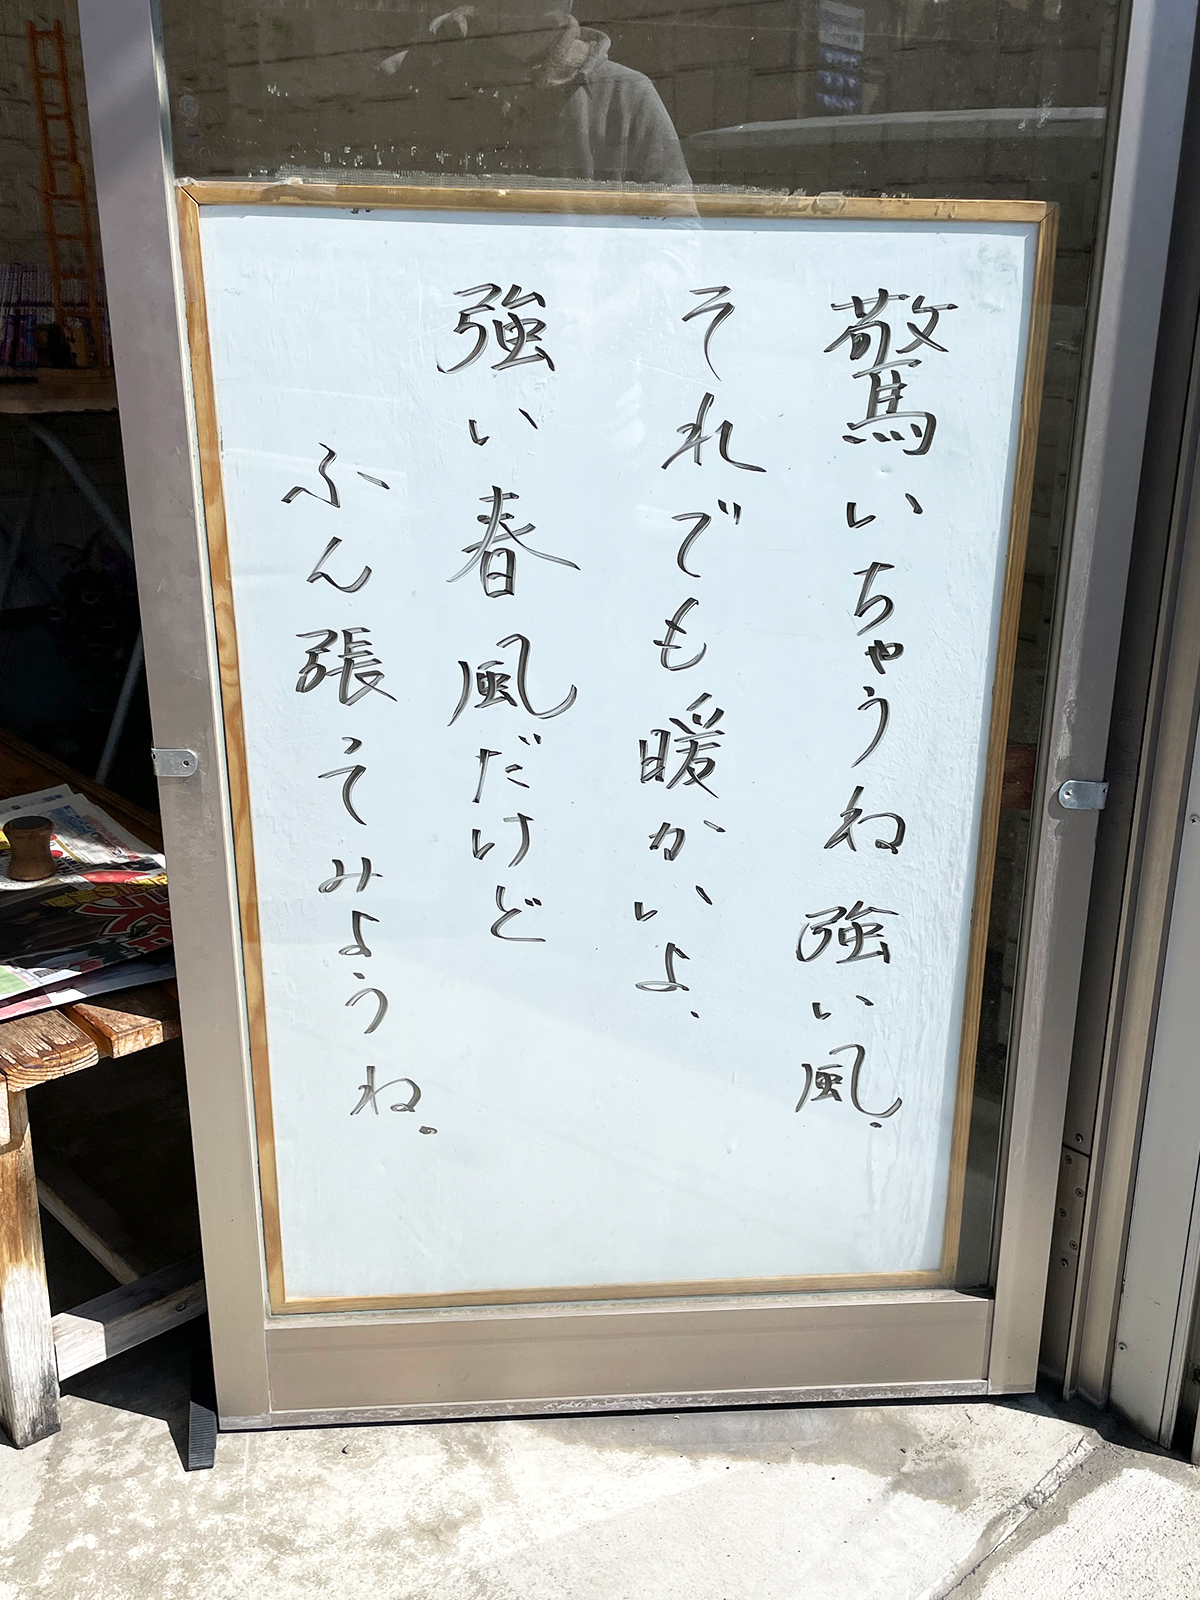 驚いちゃうね強い風.
それでも暖かいよ.
強い春風だけど
ふん張ってみようね.